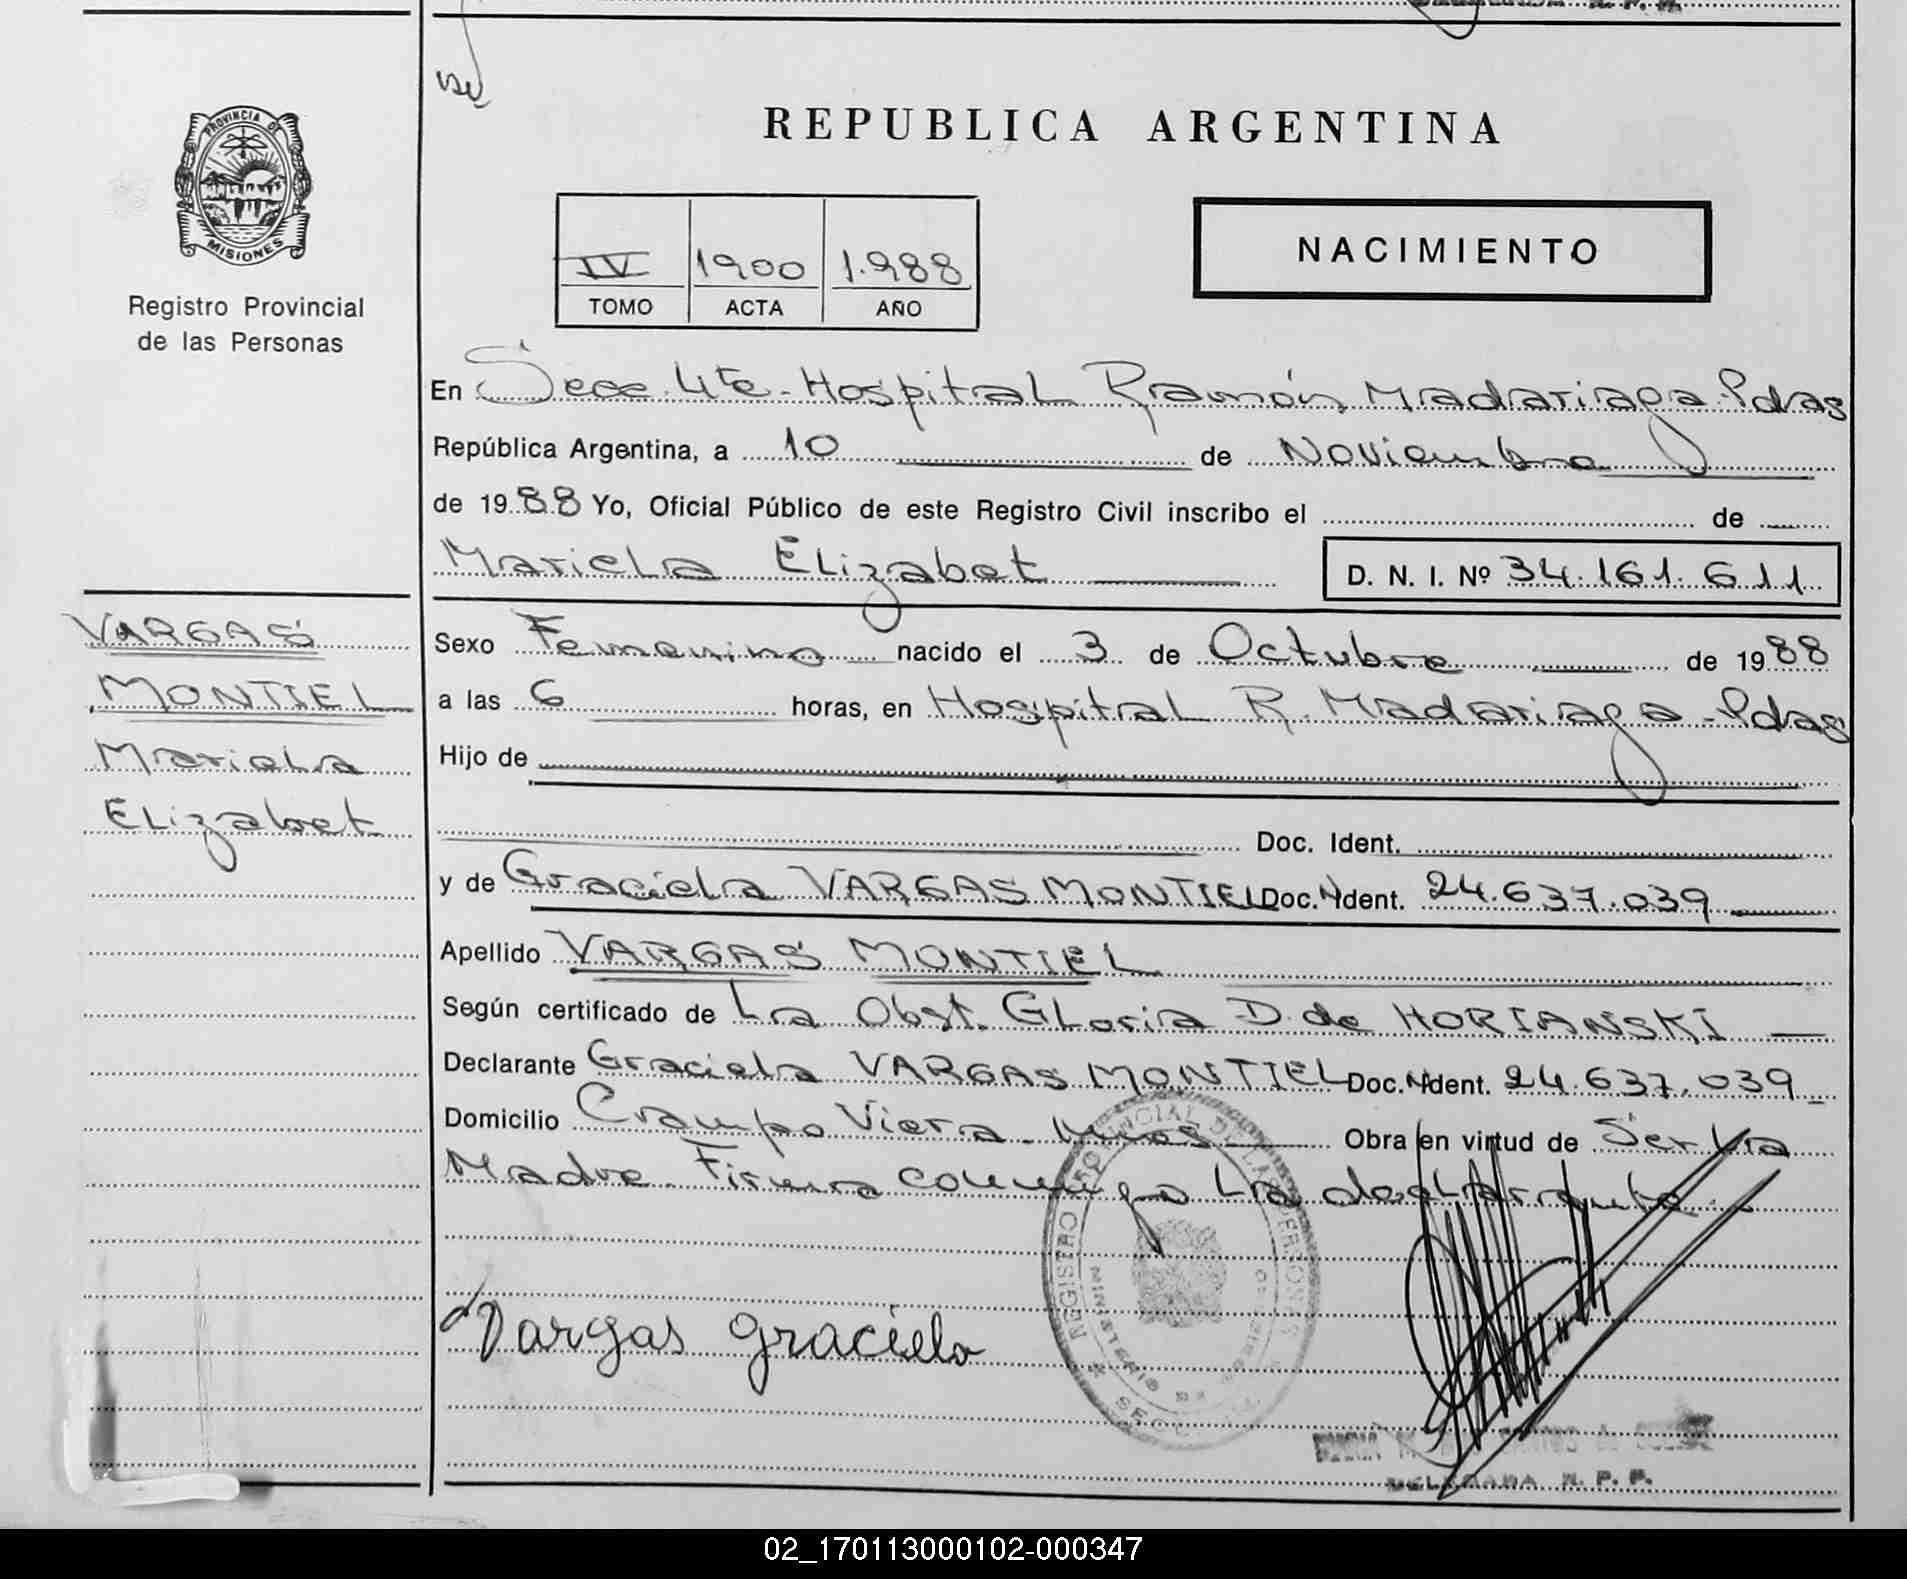 REPUBLICA ARGENTINA
PROVINCIA DE
MISIONES
Registro Provincial
de las Personas
IV 1900 1.988
TOMO ACTA AÑO
NACIMIENTO
En Secc. 4te. Hospital Ramón Madariaga - Pdas
República Argentina, a 10 de Noviembre
de 1988 Yo, Oficial Público de este Registro Civil inscribo el de
Mariela Elizabet D. N. I. Nº 34.161.611
VARGAS
MONTIEL
Mariela
Elizabet
Sexo Femenino nacido el 3 de Octubre de 1988
a las 6 horas, en Hospital R. Madariaga - Pdas
Hijo de
Doc. Ident.
y de Graciela VARGAS MONTIEL Doc. Ident. 24.637.039
Apellido VARGAS MONTIEL
Según certificado de La Obst. Gloria D. de HORIANSKI
Declarante Graciela VARGAS MONTIEL Doc. Ident. 24.637.039
Domicilio Campo Viera - Mnes Obra en virtud de Ser La
Madre. Firma conmigo La declarante.
REGISTRO PROVINCIAL DE LAS PERSONAS
MINISTERIO DE
Vargas Graciela
DELEGADA R. P. P.
02_170113000102-000347